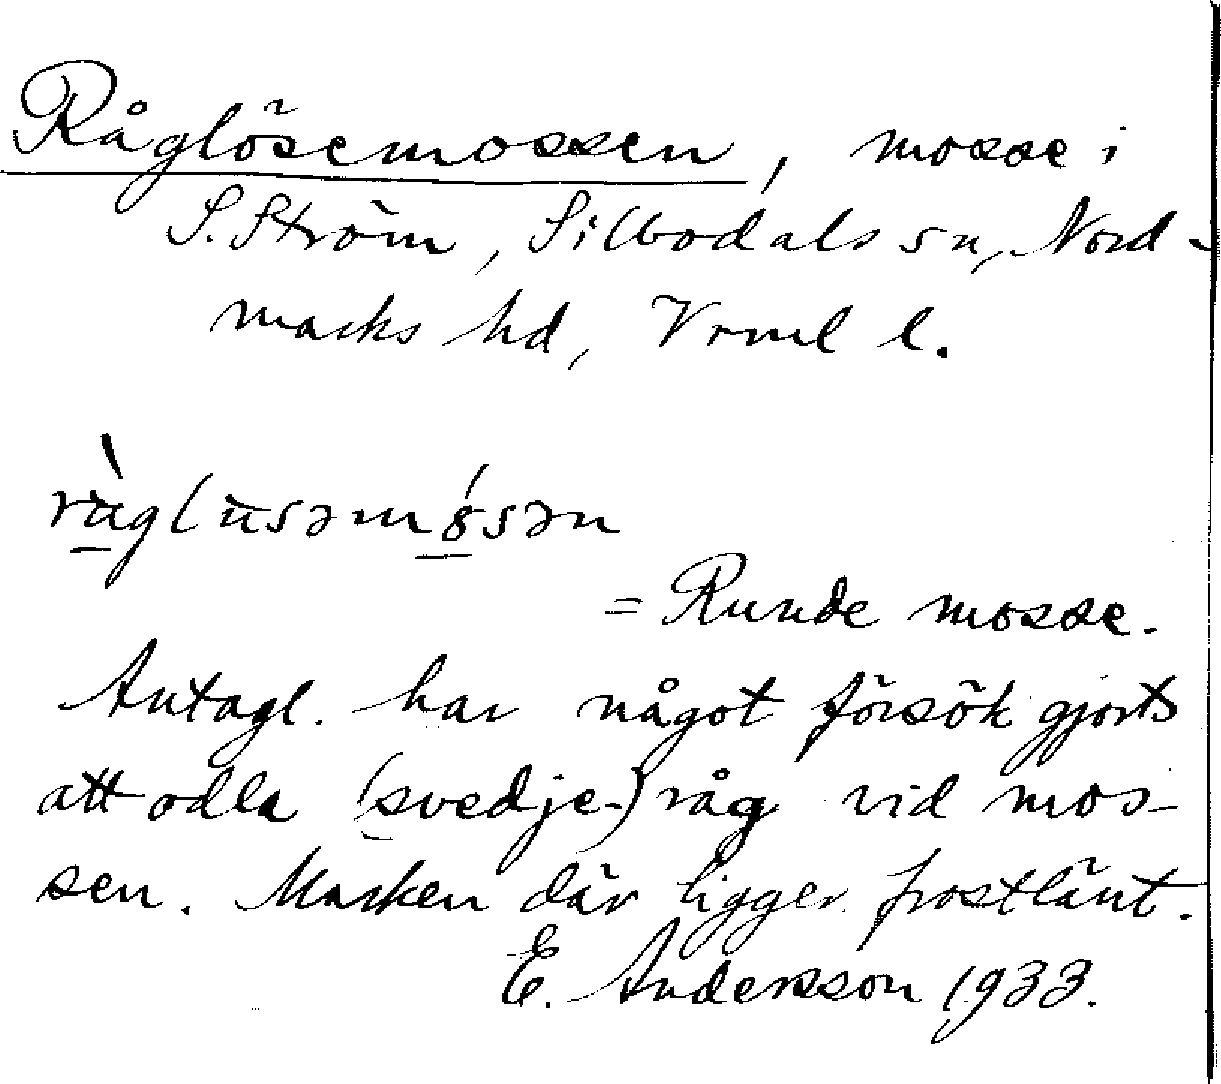 Råglösemossen, mosse i
S. Ström, Silbodals sn, Nord-
marks hd, Vrml l.
= Runde mosse.
Antagl. har något försök gjorts
att odla (svedje-) råg vid mos-
sen. Marken där ligger frostlänt.
E. Andersson 1933.